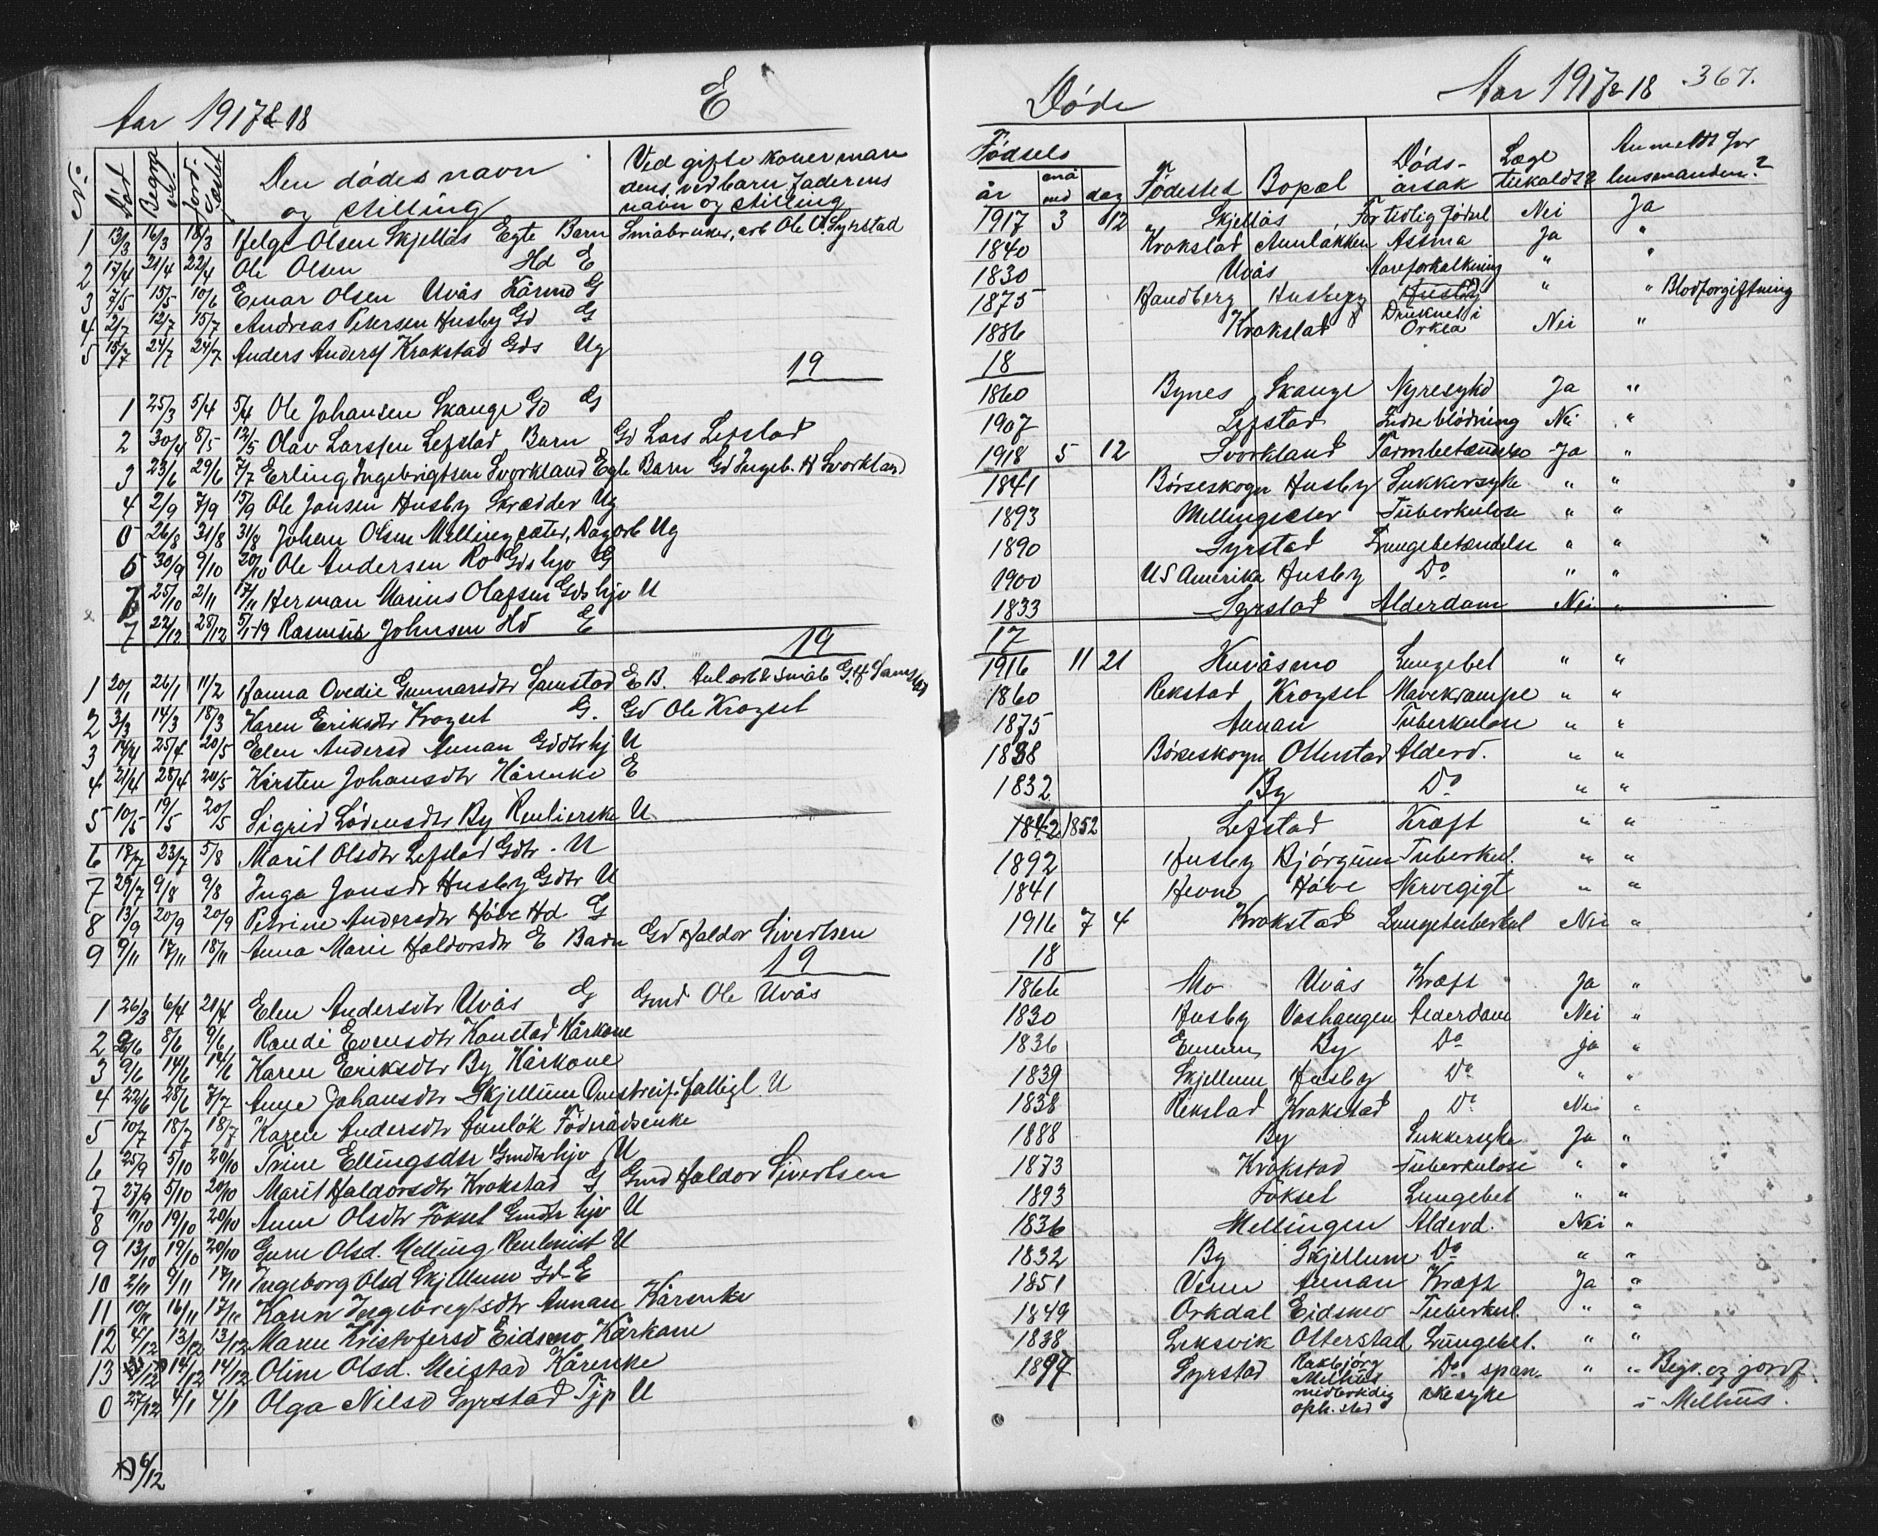 Aar 1917 & 18 E
Døde Aar 1917 & 18 367.
No Død Begra vet Jord- fæstet Den dødes navn og stilling Ved gifte koner man dens, ved barn faderens navn og stilling
Fødsels år må ned dag Fødested Bopæl Døds- årsak Læge tilkaldt? Anmeldt for lensmanden?
1 13/3 16/3 18/3 Helge Olsen Skjellås Egte Barn Småbruker, arb Ole O. Syrstad 1917 3 12 Skjellås For tidlig fødsel Nei Ja
2 17/4 21/4 22/4 Ole Olsen Hd E 1840 Krokstad Aunløkken Astma Ja "
3 7/5 15/5 10/6 Einar Olsen Uvås Kårmd G 1830 Uvås Åreforkalkning " "
4 2/7 12/7 15/7 Andreas Petersen Husby Gd G 1875 Handberg Husby Husby " " Blodforgiftning
5 15/7 24/7 24/7 Anders Anders Krokstad Gds Ug 1886 Krokstad Druknet i Orkla Nei "
19 18
1 25/3 5/4 5/4 Ole Johansen Skauge Gd G 1860 Bynes Skauge Nyresykd Ja "
2 30/4 8/5 12/5 Olav Larssen Lefstad Barn Gd Lars Lefstad 1907 Lefstad Indre blødning Nei "
3 23/6 29/6 7/7 Erling Ingebrigtsen Svorkland Egte Barn Gd Ingeb. H Svorkland 1918 5 12 Svorkland Tarmbetændelse Ja "
4 2/9 7/9 15/9 Ole Jonsen Husby Skrædder Ug 1841 Børseskogn Husby Sukkersyke " "
0 26/8 31/8 31/8 Johan Olsen Melling sæter, Dagarb Ug 1893 Mellingsæter Tuberkulose " "
5 30/9 9/10 20/10 Ole Andersen Ro Gds hjv G 1890 Syrstad Lungebetændelse " "
6 25/10 2/11 17/11 Herman Marius Olafsen Gds hjv U 1900 US Amerika Husby Do " "
7 22/12 28/12 5/1-19 Rasmus Johnsen Hd E 1833 Syrstad Alderdom Nei "
19 17
1 20/1 26/1 11/2 Hanna Ovedie Gunnarsdtr Samstad E B. Anl arb & småb G. H. Samstad 1916 11 21 Kuvåsmo Lungebet " "
2 3/3 14/3 18/3 Karen Eriksdtr Krogset G. Gd Ole Krogset 1860 Rekstad Krogset Mavekrampe " "
3 14/4 25/4 20/5 Elen Andersd Aunan Gddtr hj U 1875 Aunan Tuberkulose " "
4 21/4 28/4 20/5 Kirsten Johansdtr Kårenke E 1838 Børseskogn Otterstad Alderd. " "
5 10/5 19/5 20/5 Sigrid Lødensdtr By Renlierske U 1832 By Do " "
6 18/7 23/7 5/8 Marit Olsdtr Lefstad Gdtr. U 1842 1852 Lefstad Kræft " "
7 29/7 9/8 9/8 Inga Jonsdr Husby Gdtr U 1892 Husby Bjørgum Tuberkul. " "
8 13/9 20/9 20/9 Petrine Andersdtr Høve Hd. G 1841 Hevne Høve Nervegigt " "
9 9/11 17/11 18/11 Anna Marie Haldorsdtr E Barn Gd Haldor Sivertsen 1916 7 4 Krokstad Lungetuberkul Nei "
19 18
1 26/3 6/4 21/4 Elen Andersdtr Uvås G Gmd Ole Uvås 1866 Mo Uvås Kræft Ja "
2 2/6 8/6 9/6 Randi Evensdtr Konstad Kårkone 1830 Husby Voshaugen Alderdom Nei "
3 9/6 14/6 16/6 Karen Eriksdtr By Kårkone 1836 By Do ja "
4 22/6 28/6 7/7 Anne Johansdtr Skjellum Omstreif. fattigl. U 1839 Skjellum Husby Do " "
5 10/7 18/7 18/7 Karen Andersdtr Aunløk Føderådsenke 1838 Rekstad Krokstad Do Nei "
6 25/9 5/10 20/10 Trine Ellingsdtr Gmdtr hjv U 1888 By Sukkersyke Ja "
7 27/9 5/10 20/10 Marit Haldorsdtr Krokstad G Gmd Haldor Sivertsen 1873 Krokstad Tuberkulose " "
8 11/10 19/10 20/10 Anne Olsdtr Foksel Gmdtr hjv U 1893 Foksel Lungebet " "
9 13/10 19/10 20/10 Guru Olsd. Melling Renlmist U 1836 Mellingen Alderd. Nei "
10 2/11 9/11 17/11 Ingeborg Olsd Skjellum Gd-E 1832 By Skjellum Do " "
11 10/11 16/11 17/11 Karen Ingebregtsdtr Aunan Kårenke 1851 Venn Aunan Kræft Ja "
12 4/12 13/12 13/12 Maren Kristofersd Eidsmo Kårkone 1849 Orkdal Eidsmo Tuberkul. " "
13 14/12 14/12 Oline Olsd. Kårenke 1838 Leksvik Otterstad Lungebet. " "
0 27/12 4/1 4/1 Olga Nilsd Syrstad Tjp U 1897 Syrstad Rakbjørg Melhus midlertidig oph. sted Do. span- skesyke " " Begr. og jordf. i Melhus.
6/12